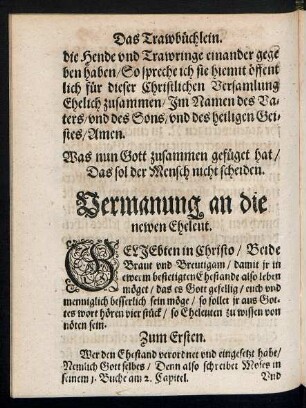 Das Trawbüchlein.
die Hende vnd Trawringe einander gege
ben haben / So spreche ich sie hiemit öffent
lich für dieser Christlichen Versamlung
Ehelich zusammen / Jm Namen des Va-
ters / vnd des Sons / vnd des heiligen Gei-
stes / Amen.
Was nun Gott zusammen gefüget hat /
Das sol der Mensch nicht scheiden.
Vermanung an die
newen Eheleut.
GELJEbten in Christo / Beide
Braut vnd Breutigam / damit jr in
ewerm bestetigten Ehestande also leben
möget / das es Gott gefellig / euch vnd
menniglich besserlich sein möge / so sollet jr aus Got-
tes wort hören vier stück / so Eheleuten zu wissen von
nöten sein.
Zum Ersten.
Wer den Ehestand verordnet vnd eingesetzt habe /
Nemlich Gott selbes / Denn also schreibet Moses in
seinem 1. Buche am 2. Capitel.
Vnd